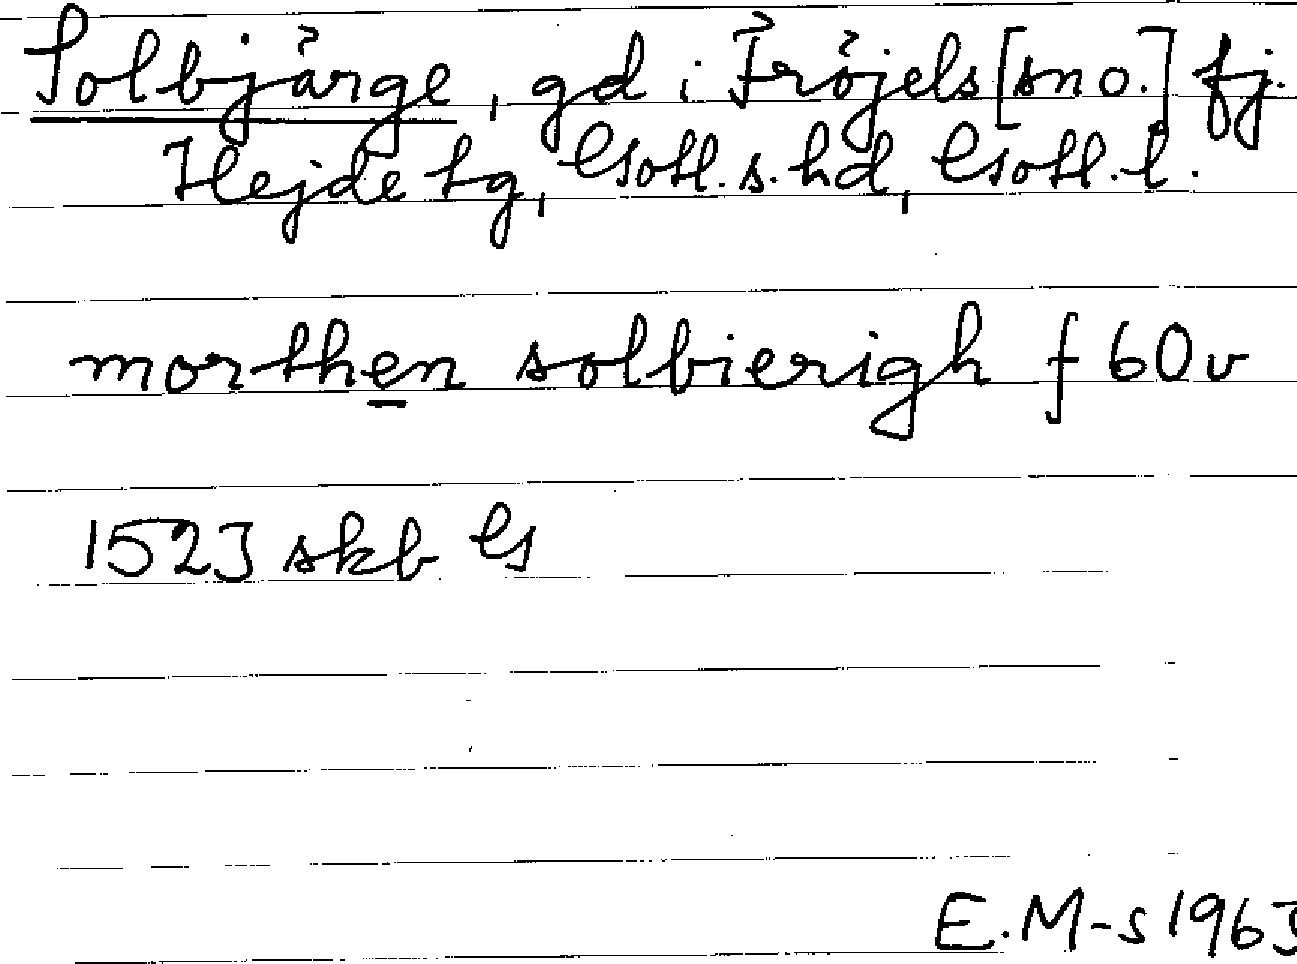 Solbjärge, gd i Fröjels [sn o.] fj.
Hejde tg, Gotl. s. hd, Gotl. l.
morthen solbierigh f 60v
1523 skb G
E. M-s 1963